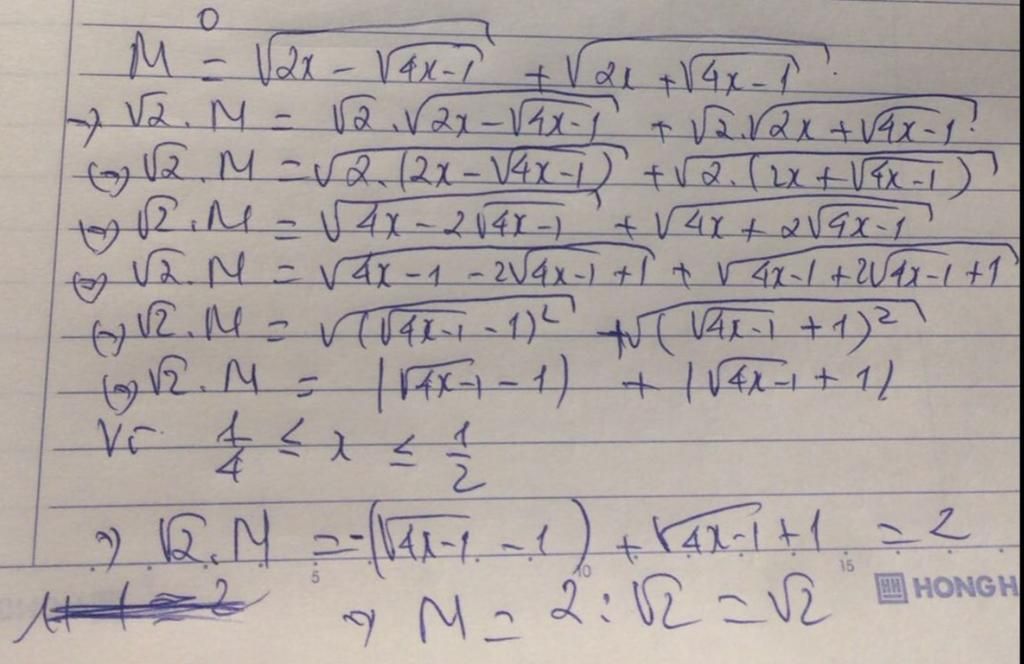 0
M = √(2x - √(4x-1)) + √(2x + √(4x-1))
→ √2. M = √2.√(2x-√(4x-1)) + √2.√(2x+√(4x-1))
(=) √2. M = √(2.(2x-√(4x-1))) + √(2.(2x+√(4x-1)))
(=) √2. M = √(4x-2√(4x-1)) + √(4x+2√(4x-1))
(=) √2. M = √(4x-1-2√(4x-1)+1) + √(4x-1+2√(4x-1)+1)
(=) √2. M = √((√(4x-1)-1)²) + √((√(4x-1)+1)²)
(=) √2. M = |√(4x-1)-1| + |√(4x-1)+1|
Vì 1/4 ≤ x ≤ 1/2
=) √2. M = -(√(4x-1)-1) + √(4x-1)+1 = 2
5 10 15
HH HONG H
=) M = 2 : √2 = √2